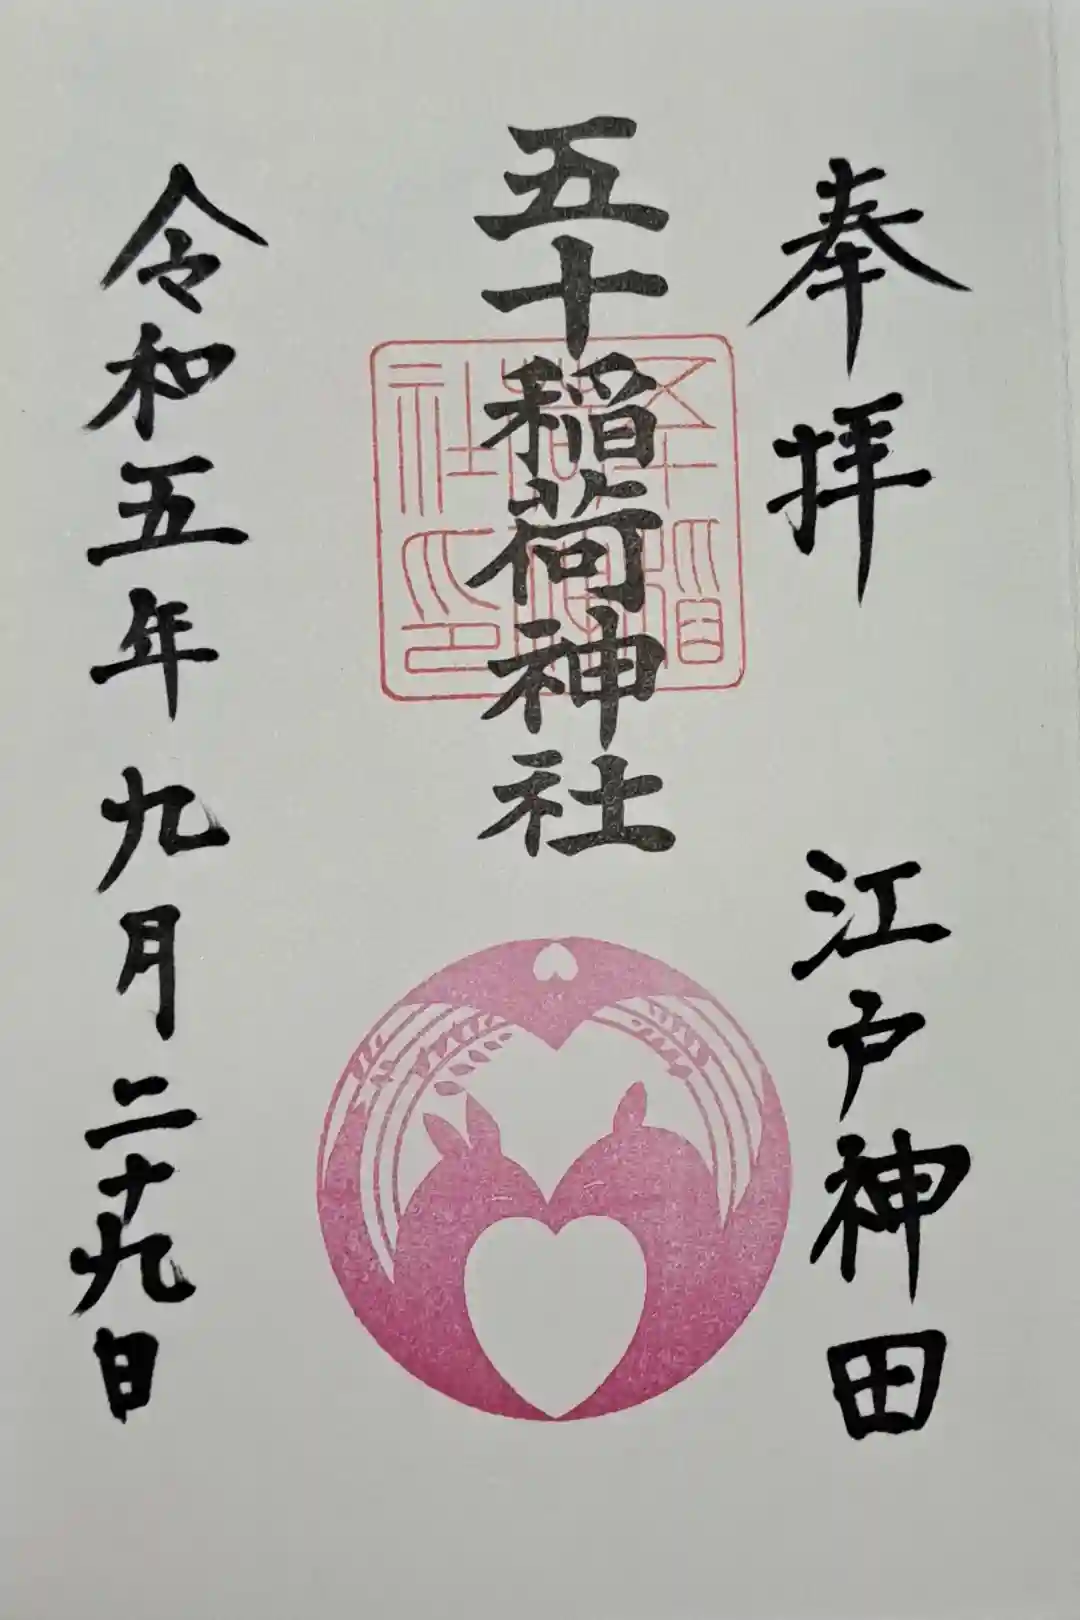 奉拝　江戸神田
五十稲荷神社
五十稲荷神社印
令和五年九月二十九日